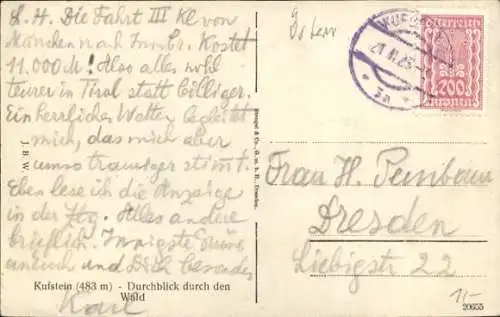 L. H. Die Fahrt III Kl von
München nach Innsbr. Kostet
11.000 M! Also alles wohl
teurer in Tirol statt billiger.
Ein herrliches Wetter begleitet
mich, das mich aber
umso trauriger stimmt.
Eben lese ich die Anzeige
in der Ztg. Alles andere
brieflich. Innigste Grüße
und Dich besonders
Karl
Kufstein (483 m) - Durchblick durch den
Wald
J. B. W.
Stengel & Co., G. m. b. H., Dresden.
KUFSTEIN
Österreich
200
Kronen
Frau H.
Dresden
Liebigstr 22
20655